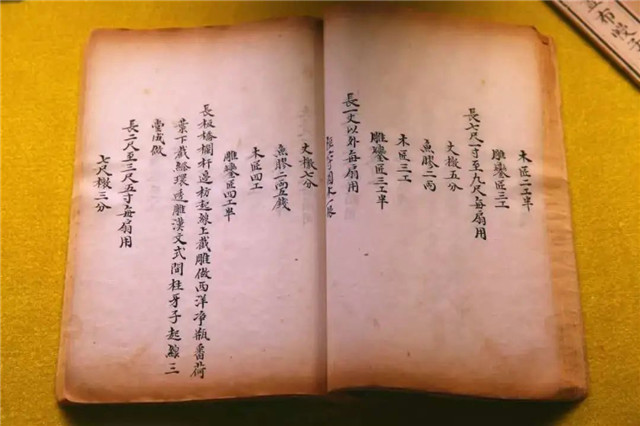 木匠二工半
雕鑾匠三工
長七尺一寸至九尺每扇用
丈橔五分
魚膠二两
木匠三工
雕鑾匠三工半
長一丈以外每扇用
丈橔七分
魚膠二两五錢
木匠四工
雕鑾匠四工半
長板橋欄杆邊枋起線上截雕做西洋净瓶番荷
葉下截縧環透雕漢文式間柱牙子起線三
堂成做
長二尺至三尺五寸每扇用
七尺橔三分
布